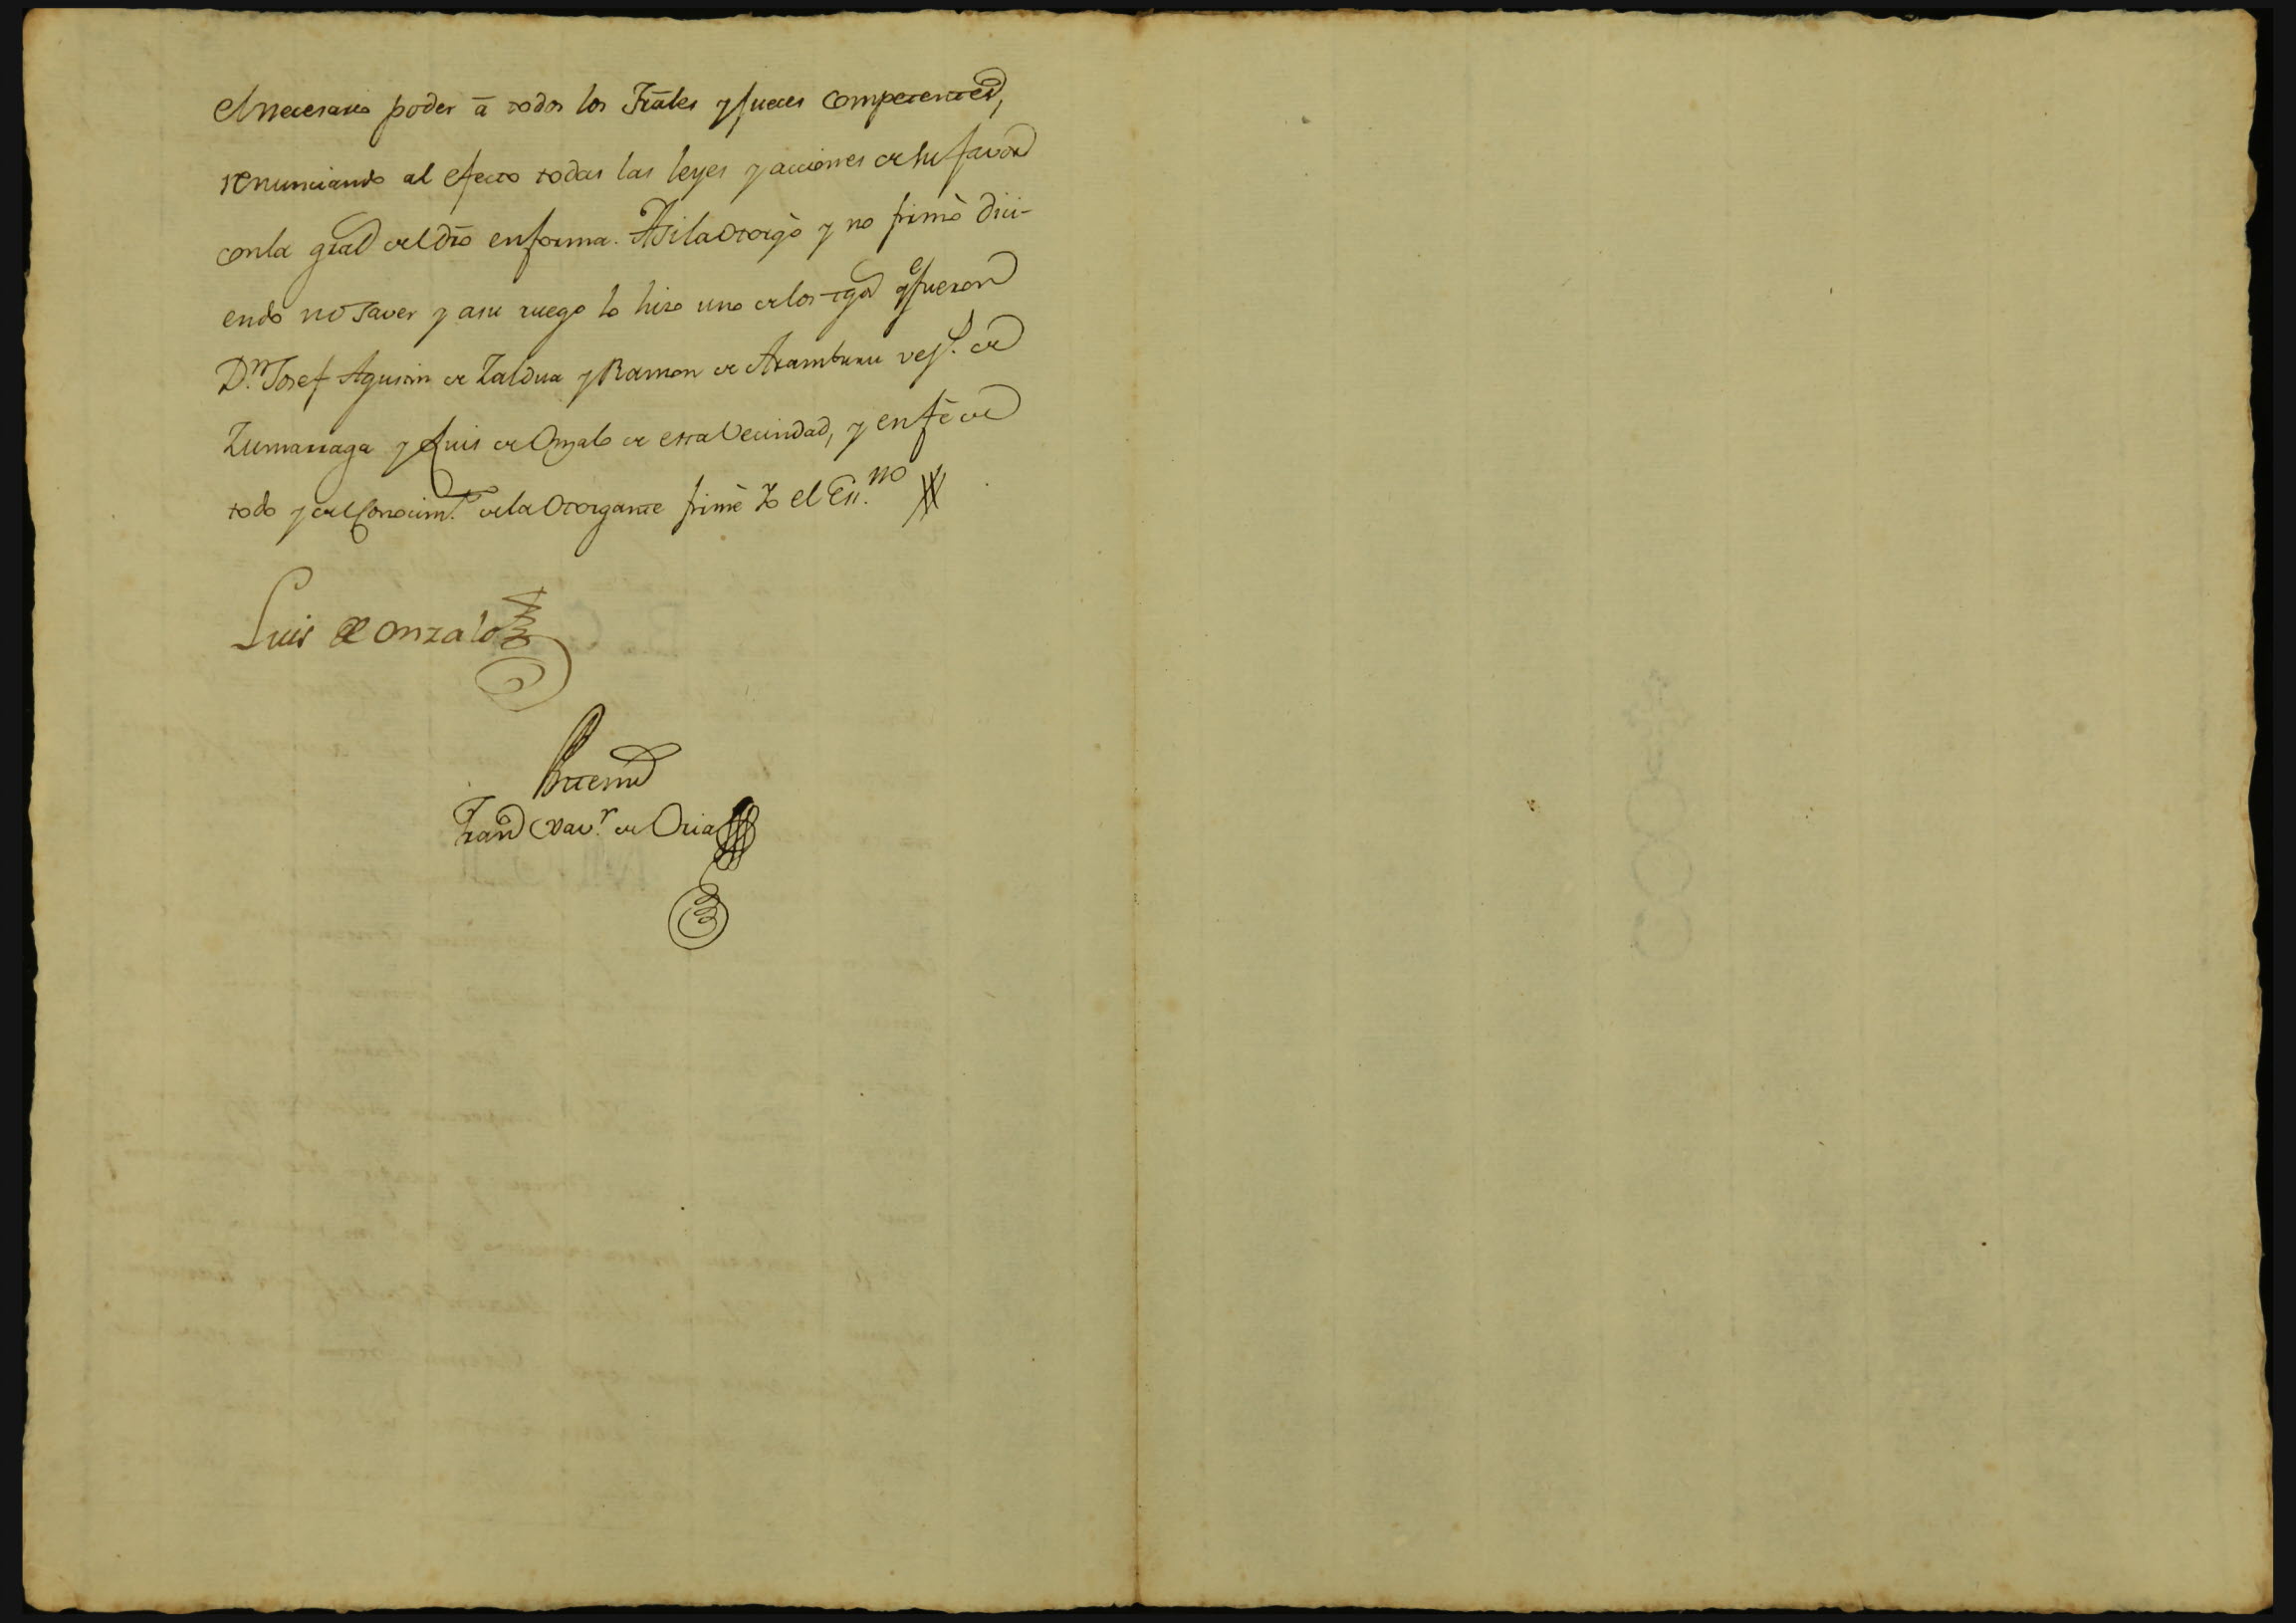 el necesario poder â todos los Trãles y Jueces competentes,
renunciando al efecto todas las leyes y acciones de su favor
con la gral del dro en forma. Asi la otorgò y no firmò dici-
endo no saver y a su ruego lo hizo uno de los tgos q.e fueron
D.n Josef Agustin de Zaldua y Ramon de Aramburu vez.s de
Zumarraga y Luis de Onzalo de esta Vecindad, y en fè de
todo y del Conocim.to de la Otorgante firmè Yo el Ess.no
Luis de Onzalo
Antemi
Fran.co Xav.r de Oria